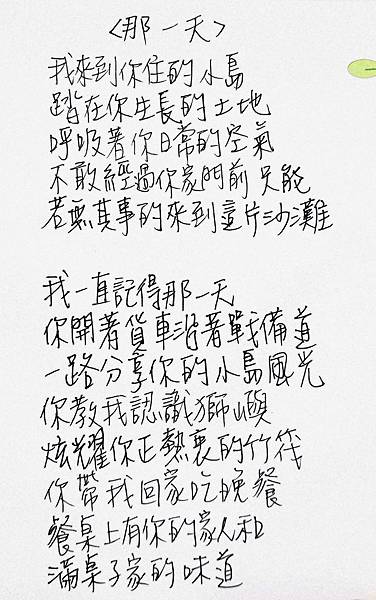 <那一天>
我來到你住的小島
踏在你生長的土地
呼吸著你日常的空氣
不敢經過你家門前 只能
若無其事的來到這片沙灘
我一直記得那一天
你開著貨車沿著戰備道
一路分享你的小島風光
你教我認識獅嶼
炫耀你正熱衷的竹筏
你帶我回家吃晚餐
餐桌上有你的家人和
滿桌子家的味道